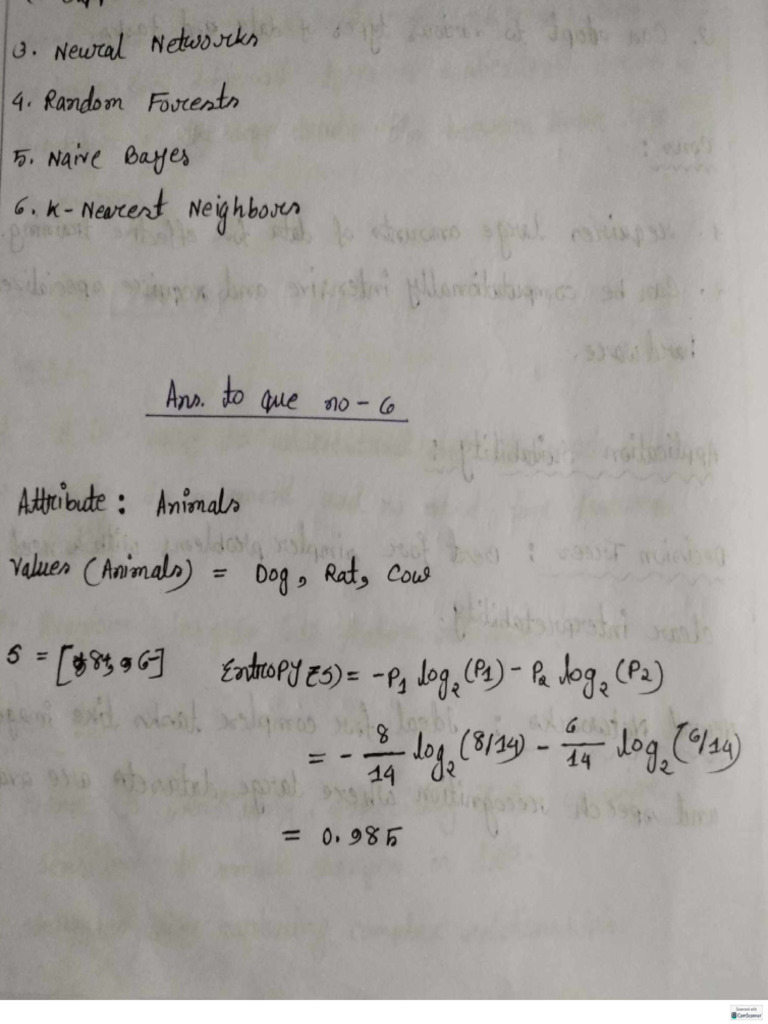 3. Neural Networks
4. Random Forests
5. Naive Bayes
6. K-Nearest Neighbours
Ans. to que no - 6
Attribute : Animals
Values (Animals) = Dog, Rat, Cow
S = [8+, 6-] Entropy (S) = -P1 log2 (P1) - P2 log2 (P2)
= - 8/14 log2 (8/14) - 6/14 log2 (6/14)
= 0.985
Scanned with
CamScanner